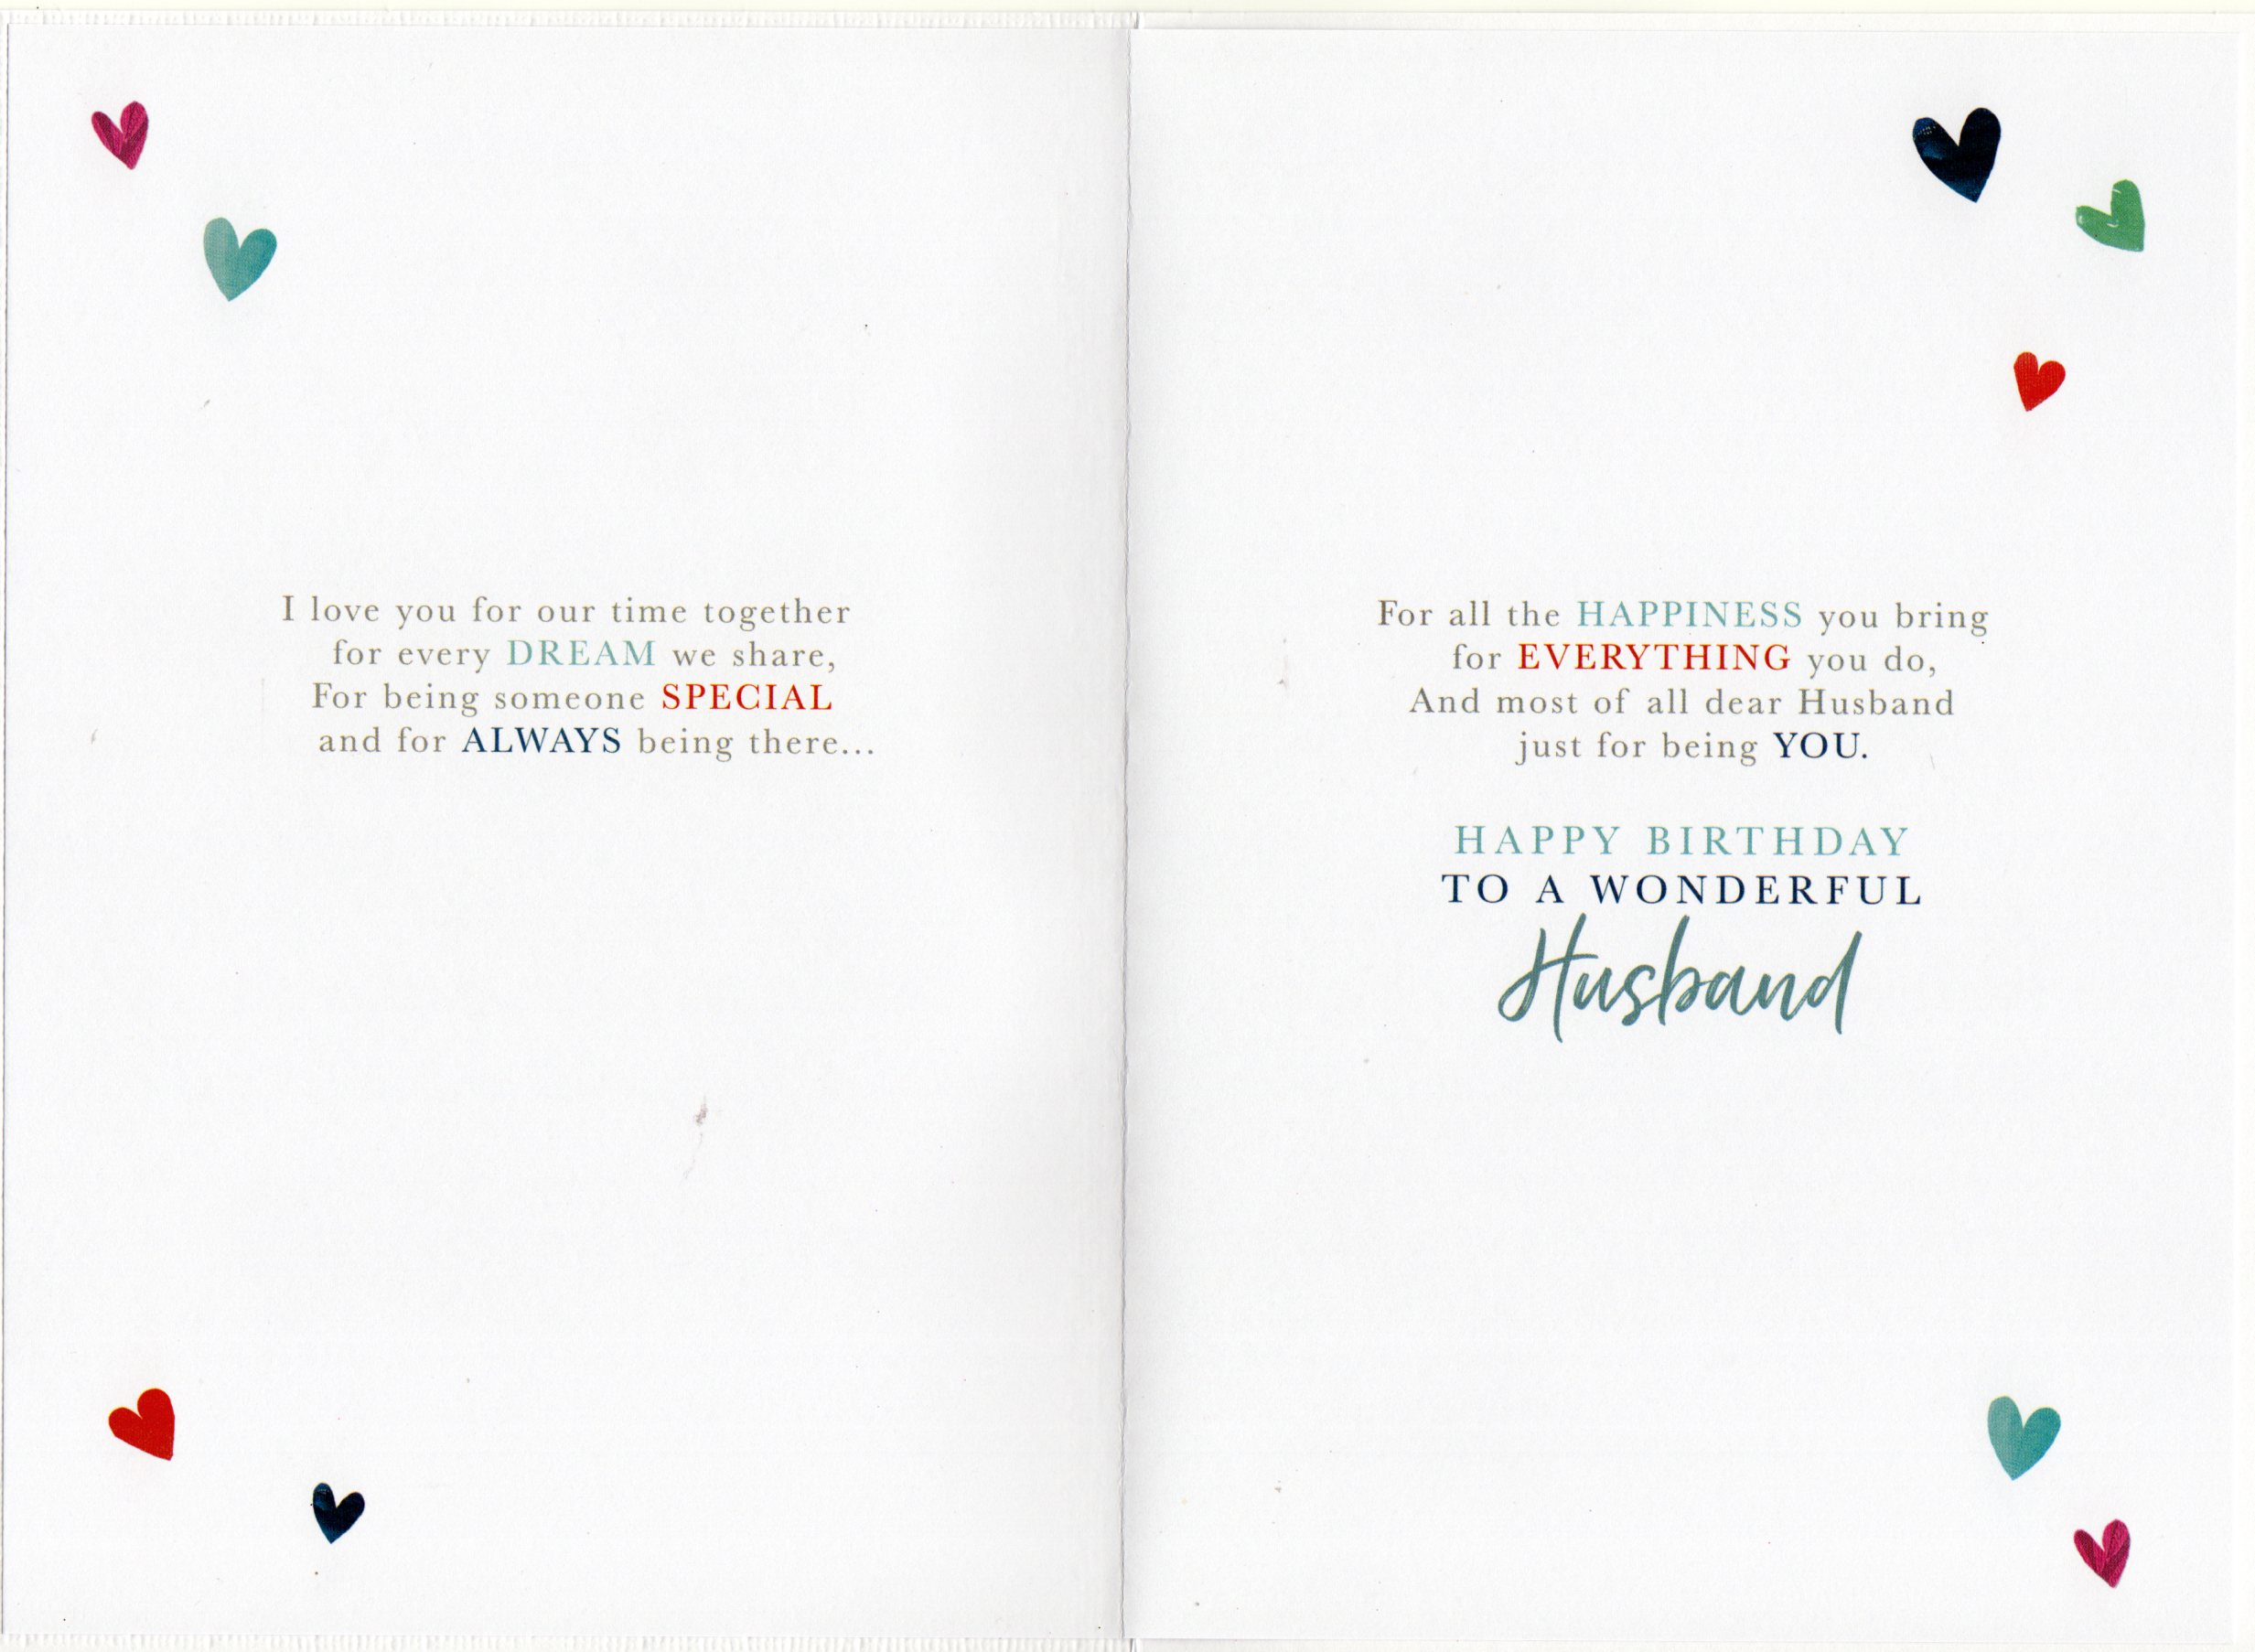 I love you for our time together
for every DREAM we share,
For being someone SPECIAL
and for ALWAYS being there...
For all the HAPPINESS you bring
for EVERYTHING you do,
And most of all dear Husband
just for being YOU.
HAPPY BIRTHDAY
TO A WONDERFUL
Husband